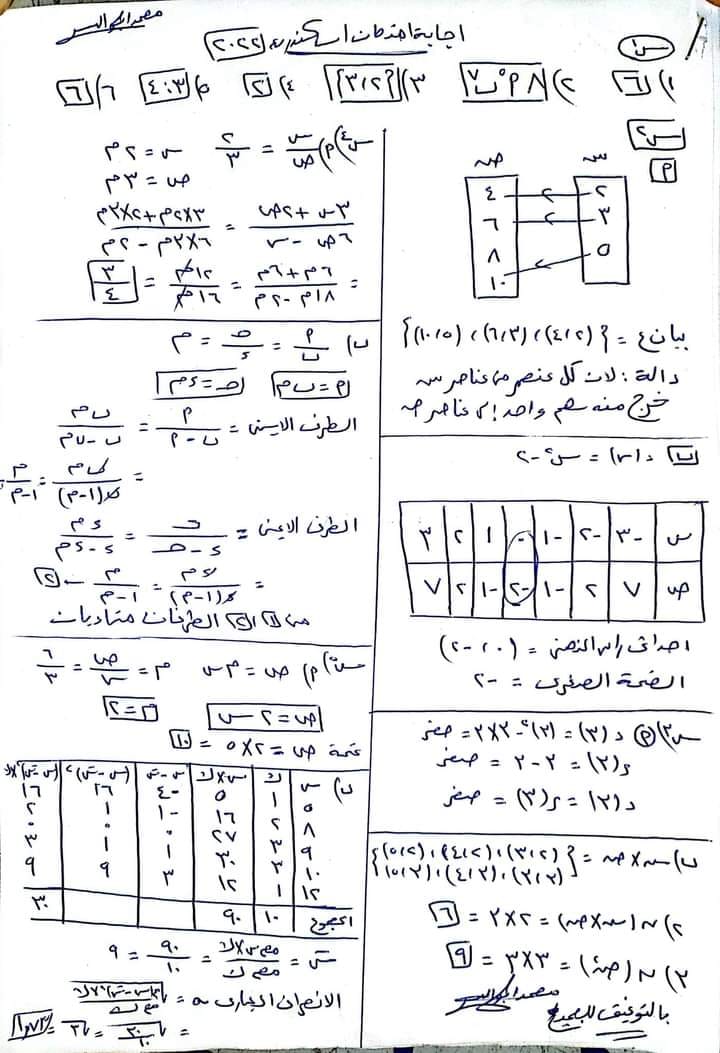 اجابة امتحان اسكندرية ٢٠٢٢
س١
١) ٦ ٢) ٨ م ٣) {٣،٢} ٤) ٢ ٥) ٤:٣ ٦) ٦
س٢
م
س ص
٢ ٤
٣ ٦
٥ ٨
١٠
بيان ع = {(٤،٢)، (٦،٣)، (١٠،٥)}
دالة: لأن كل عنصر من عناصر س
خرج منه سهم واحد إلى عناصر ص
ب) د(س) = س² - ٢
س -٣ -٢ -١ ٠ ١ ٢ ٣
ص ٧ ٢ -١ -٢ -١ ٢ ٧
احداثى راس المنحنى = (٠، -٢)
القيمة الصغرى = -٢
س٣) م) د(٣) = (٣)² - ٣×٣ = صفر
ر(٣) = ٣ - ٣ = صفر
د(٣) = ر(٣) = صفر
ب) س×ص = {(٣،٢)، (٤،٢)، (٥،٢)
(٣،٣)، (٤،٣)، (٥،٣)}
٢) ن(س×ص) = ٢×٣ = ٦
٣) ن(ص²) = ٣×٣ = ٩
بالتوفيق للجميع
س٤) م) س/ص = ٢/٣ س = ٢م
ص = ٣م
(٣س + ٢ص)/(٦ص - س) = (٣×٢م + ٢×٣م)/(٦×٣م - ٢م)
= (٦م + ٦م)/(١٨م - ٢م) = ١٢م/١٦م = ٣/٤
ب) م/ب = ح/د = م
م = ب م ح = د م
الطرف الايمن = م/(ب - م) = ب م/(ب - ب م)
= ب م/ب(١-م) = م/(١-م)
الطرف الايسر = ح/(د - ح) = د م/(د - د م)
= د م/د(١-م) = م/(١-م) ← ٢
من ١، ٢ الطرفان متساويان
س٥) م) ص = م س م = ص/س = ٦/٣
م = ٢
ص = ٢ س
قيمة ص = ٢×٥ = ١٠
ب) س ك س×ك س-سَ (س-سَ)² (س-سَ)²×ك
٥ ١ ٥ -٤ ١٦ ١٦
٨ ٢ ١٦ -١ ١ ٢
٩ ٣ ٢٧ ٠ ٠ ٠
١٠ ٣ ٣٠ ١ ١ ٣
١٢ ١ ١٢ ٣ ٩ ٩
المجموع ١٠ ٩٠ ٣٠
سَ = مجـ س×ك / مجـ ك = ٩٠/١٠ = ٩
الانحراف المعيارى = √(مجـ(س-سَ)²×ك / مجـ ك)
= √(٣٠/١٠) = √٣ = ١,٧٣